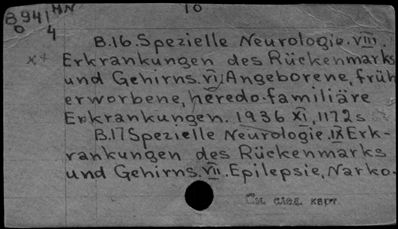 B 941 MN 10
6 4
B.16. Spezielle Neurologie. VIII.
x+ Erkrankungen des Rückenmarks
und Gehirns. VI. Angeborene, früh
erworbene, heredo-familiäre
Erkrankungen. 1936 XI, 1172s
B.17 Spezielle Neurologie. IX Erk-
rankungen des Rückenmarks
und Gehirns. VII. Epilepsie, Narko-
См. след. карт.